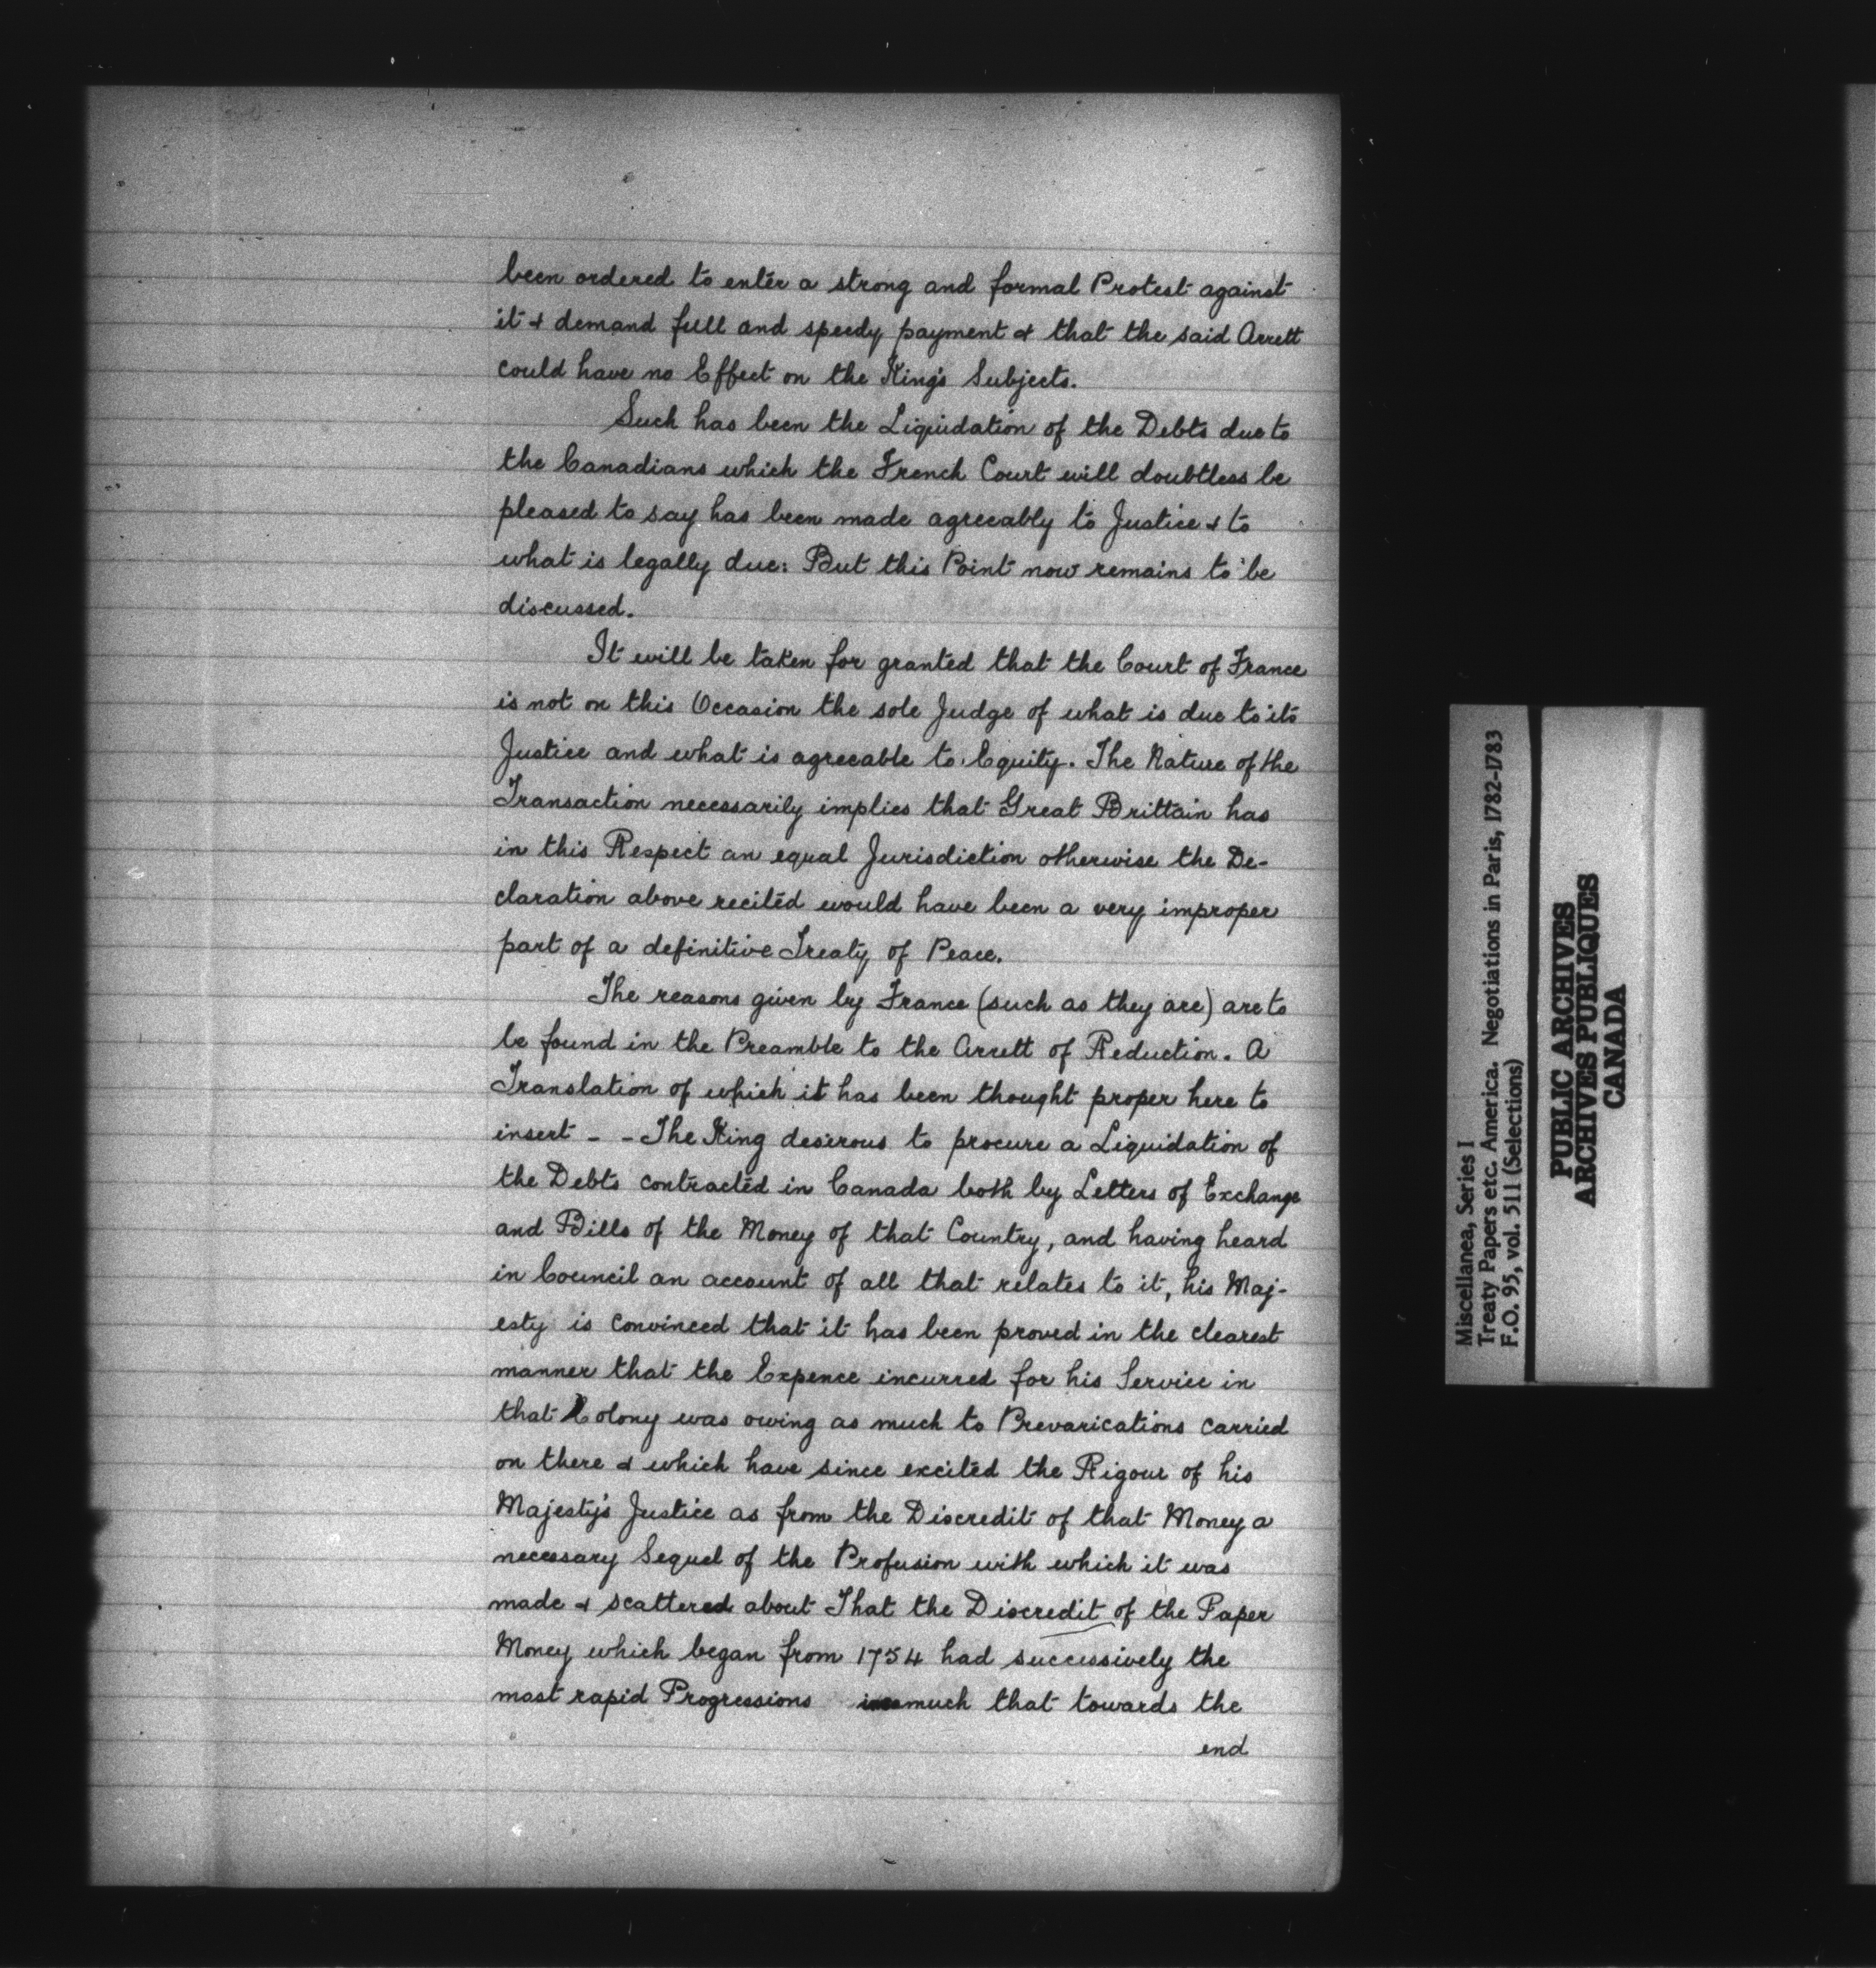 been ordered to enter a strong and formal Protest against
it & demand full and speedy payment & that the said Arrett
could have no Effect on the King's Subjects.
Such has been the Liquidation of the Debts due to
the Canadians which the French Court will doubtless be
pleased to say has been made agreeably to Justice & to
what is legally due: But this Point now remains to be
discussed.
It will be taken for granted that the Court of France
is not on this Occasion the sole Judge of what is due to its
Justice and what is agreeable to Equity. The Nature of the
Transaction necessarily implies that Great Brittain has
in this Respect an equal Jurisdiction otherwise the De-
claration above recited would have been a very improper
part of a definitive Treaty of Peace.
The reasons given by France (such as they are) are to
be found in the Preamble to the Arrett of Reduction. A
Translation of which it has been thought proper here to
insert - - The King desirous to procure a Liquidation of
the Debts contracted in Canada both by Letters of Exchange
and Bills of the Money of that Country, and having heard
in Council an account of all that relates to it, his Maj-
esty is convinced that it has been proved in the clearest
manner that the Expence incurred for his Service in
that Colony was owing as much to Prevarications carried
on there & which have since excited the Rigour of his
Majesty's Justice as from the Discredit of that Money a
necessary Sequel of the Profusion with which it was
made & scattered about That the Discredit of the Paper
Money which began from 1754 had successively the
most rapid Progressions inasmuch that towards the
end
Miscellanea, Series I
Treaty Papers etc. America. Negotiations in Paris, 1782-1783
F.O. 95, vol. 511 (Selections)
PUBLIC ARCHIVES
ARCHIVES PUBLIQUES
CANADA